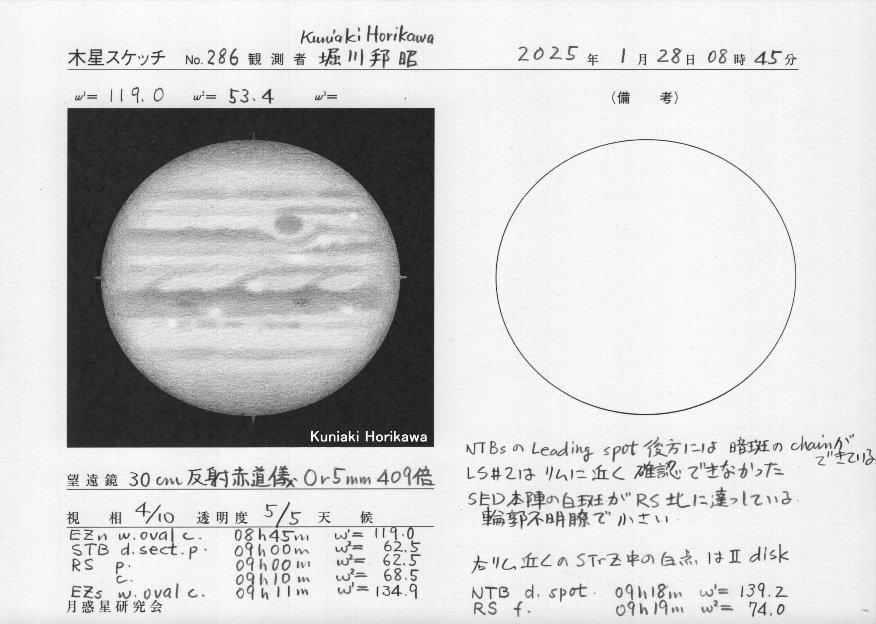 Kuniaki Horikawa
木星スケッチ No. 286 観測者 堀川邦昭 2025年 1月28日08時45分
ω¹= 119.0 ω²= 53.4 ω³=
(備 考)
Kuniaki Horikawa
NTBsのLeading spot後方には暗斑のchainが
できている
LS#2はリムに近く確認できなかった
SED本陣の白斑がRS北に達っしている.
輪郭不明瞭で小さい.
右リム近くのSTrZ中の白点はⅡdisk
NTB d. spot. 09h18m ω¹= 139.2
RS f. 09h19m ω²= 74.0
望遠鏡 30cm反射赤道儀 Or5mm 409倍
視 相 4/10 透明度 5/5 天 候
EZn w.oval c. 08h45m ω¹= 119.0
STB d.sect.p. 09h00m ω²= 62.5
RS p. 09h00m ω²= 62.5
c. 09h10m ω²= 68.5
EZs w.oval c. 09h11m ω¹= 134.9
月惑星研究会